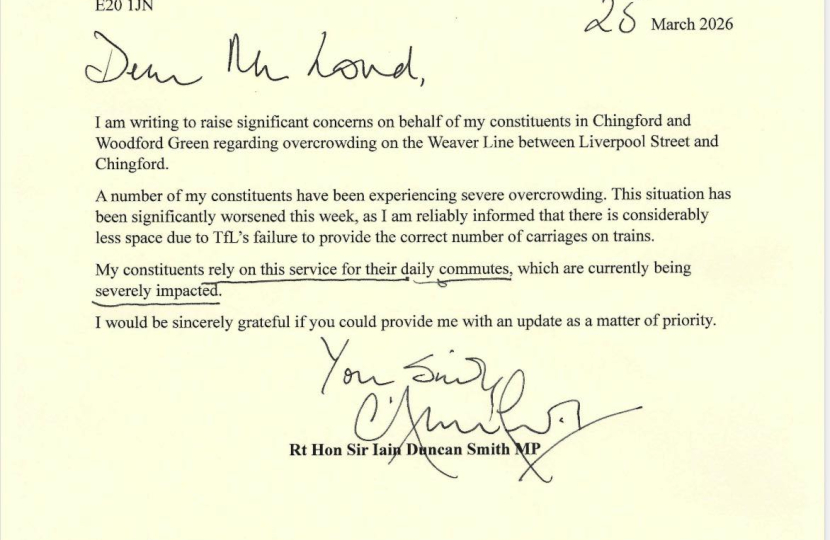 E20 1JN
25 March 2026
Dear Mr Lord,
I am writing to raise significant concerns on behalf of my constituents in Chingford and
Woodford Green regarding overcrowding on the Weaver Line between Liverpool Street and
Chingford.
A number of my constituents have been experiencing severe overcrowding. This situation has
been significantly worsened this week, as I am reliably informed that there is considerably
less space due to TfL's failure to provide the correct number of carriages on trains.
My constituents rely on this service for their daily commutes, which are currently being
severely impacted.
I would be sincerely grateful if you could provide me with an update as a matter of priority.
Rt Hon Sir Iain Duncan Smith MP